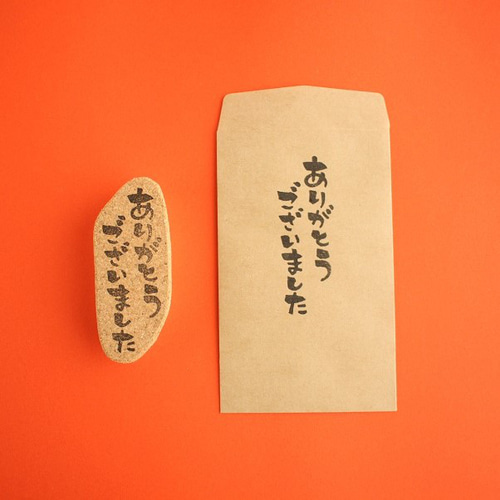 ありがとう
ございました
ありがとう
ございました